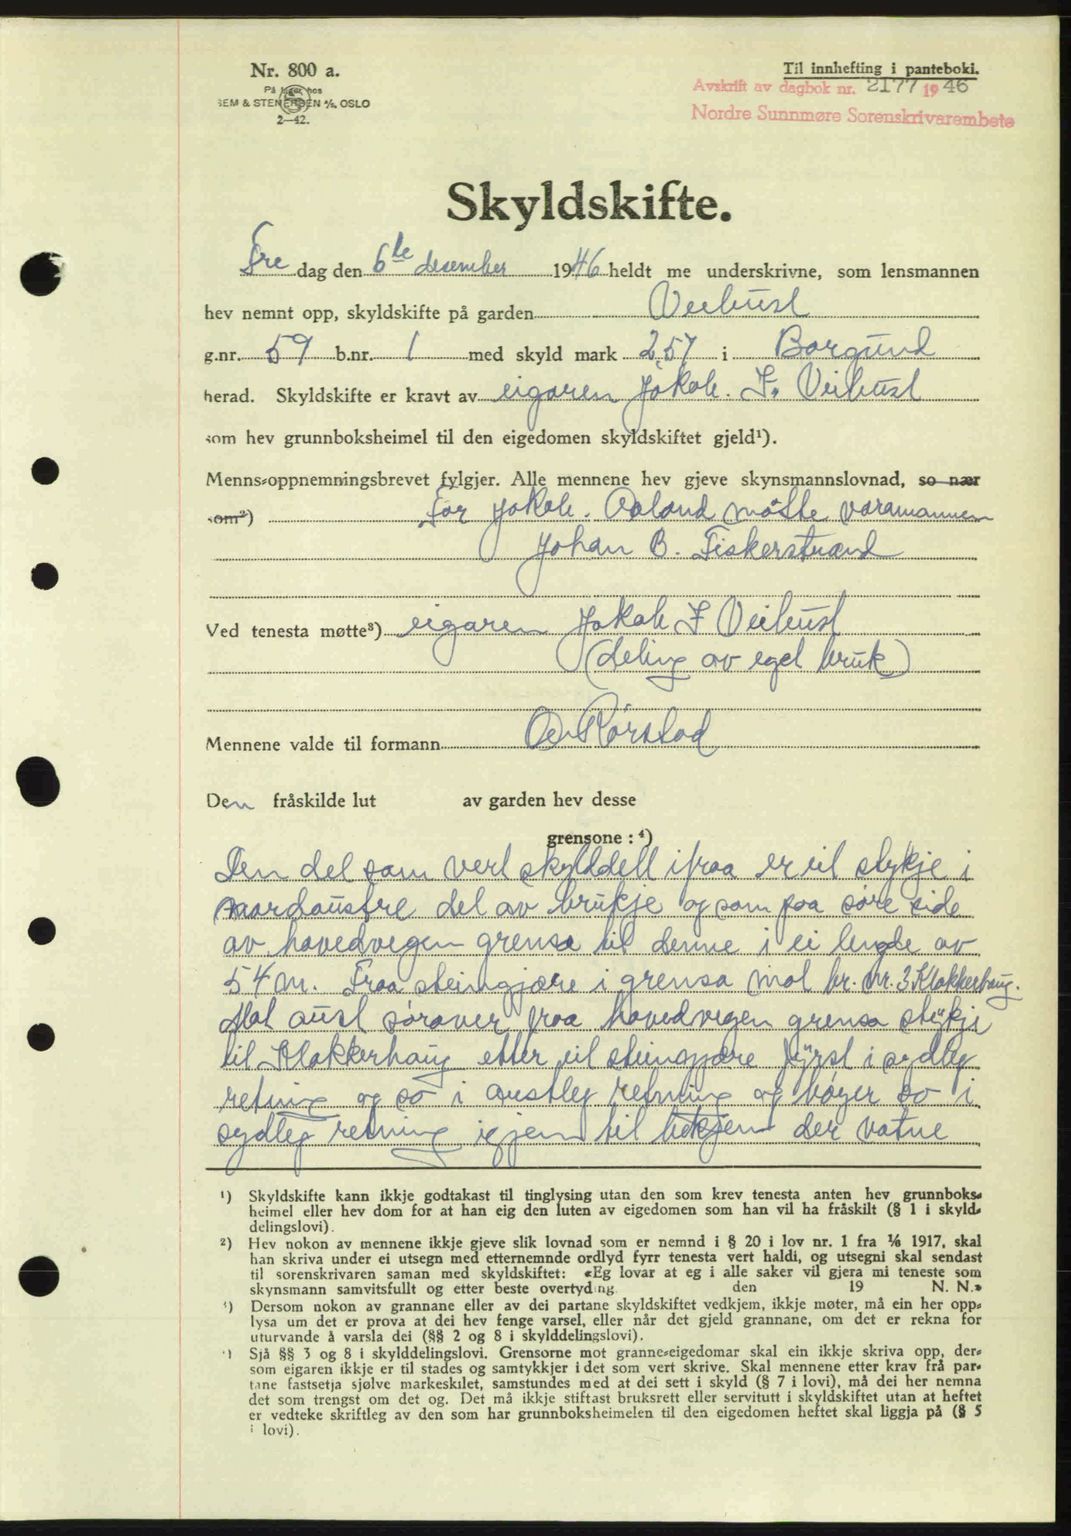 Nr. 800 a.
På lager hos
SEM & STENERSEN A/S, OSLO
2—42.
Til innhefting i panteboki.
Avskrift av dagbok nr. 2177 1946
Nordre Sunnmøre Sorenskrivarembete
Skyldskifte.
Fre dag den 6te desember 1946 heldt me underskrivne, som lensmannen
hev nemnt opp, skyldskifte på garden Veibust
g.nr. 59 b.nr. 1 med skyld mark 2,57 i Borgund
herad. Skyldskifte er kravt av eigaren Jakob. J. Veibust
som hev grunnboksheimel til den eigedomen skyldskiftet gjeld¹).
Menns-oppnemningsbrevet fylgjer. Alle mennene hev gjeve skynsmannslovnad, so nær
som²) For Jakob. Aaland møtte varamannen
Johan B. Fiskerstrand
Ved tenesta møtte³) eigaren Jakob J Veibust
(deling av eget bruk)
Mennene valde til formann O. Rørstad
Den fråskilde lut av garden hev desse
grensone : ⁴)
Den del som vert skylddelt ifraa er eit stykje i
nordaustre del av brukje og som paa søre side
av hovedvegen grensa til denne i ei lengde av
54 m. Fraa steingjære i grensa mot br. nr. 3 Klokkerhaug.
Mot aust sørover fraa hovedvegen grensa stykje
til Klokkerhaug etter eit steingjære fyrst i sydleg
retning og so i austleg retning og bøyer so i
sydleg retning igjen til bekjen der vatne
¹) Skyldskifte kann ikkje godtakast til tinglysing utan den som krev tenesta anten hev grunnboks-
heimel eller hev dom for at han eig den luten av eigedomen som han vil ha fråskilt (§ 1 i skyld-
delingslovi).
²) Hev nokon av mennene ikkje gjeve slik lovnad som er nemnd i § 20 i lov nr. 1 fra 1/6 1917, skal
han skriva under ei utsegn med etternemnde ordlyd fyrr tenesta vert haldi, og utsegni skal sendast
til sorenskrivaren saman med skyldskiftet: «Eg lovar at eg i alle saker vil gjera mi teneste som
skynsmann samvitsfullt og etter beste overtyding. den 19 N. N.»
³) Dersom nokon av grannane eller av dei partane skyldskiftet vedkjem, ikkje møter, må ein her opp-
lysa um det er prova at dei hev fenge varsel, eller når det gjeld grannane, om det er rekna for
uturvande å varsla dei (§§ 2 og 8 i skylddelingslovi).
⁴) Sjå §§ 3 og 8 i skylddelingslovi. Grensorne mot granne-eigedomar skal ein ikkje skriva opp, der-
som eigaren ikkje er til stades og samtykkjer i det som vert skrive. Skal mennene etter krav frå par-
tane fastsetja sjølve markeskilet, samstundes med at dei sett i skyld (§ 7 i lovi), må dei her nemna
det som trengst om det og. Det må ikkje stiftast bruksrett eller servitutt i skyldskiftet utan at heftet
er vedteke skriftleg av den som har grunnboksheimelen til den eigedomen heftet skal liggja på (§ 5
i lovi).